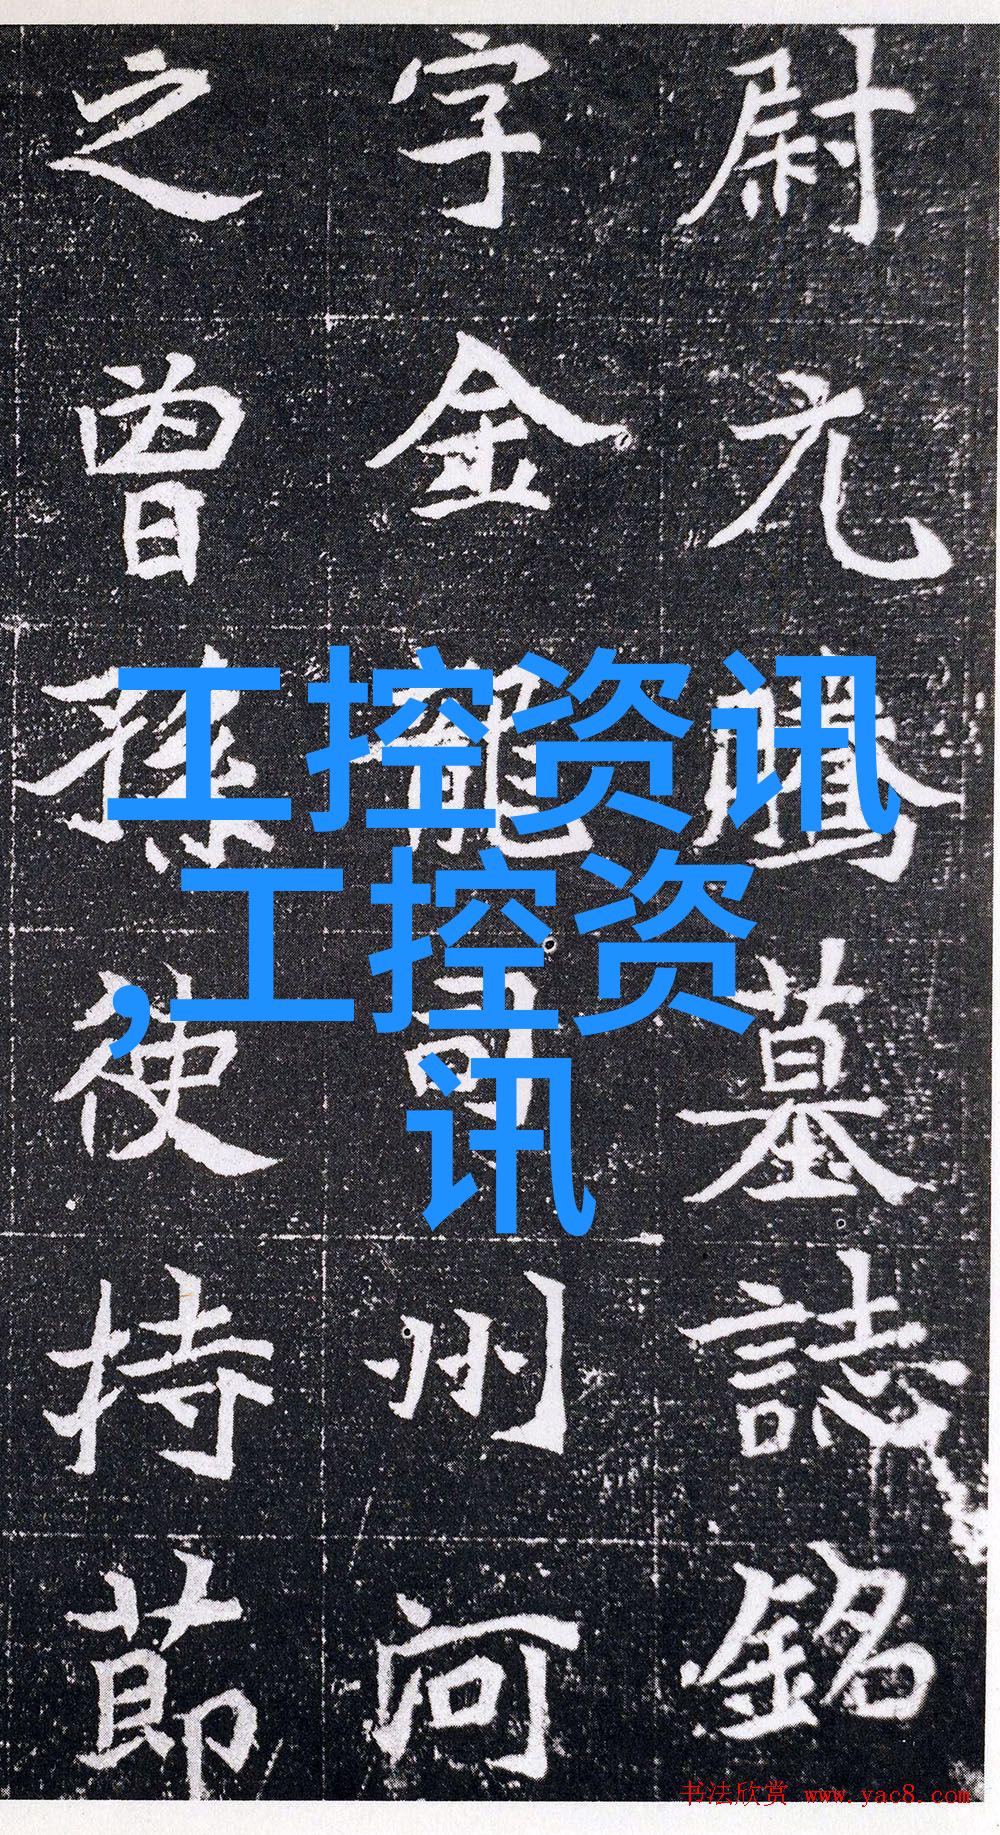 尉元騰墓誌銘
字金龍司州河
之曾孫使持節
工控资讯
,工控资
讯
书法欣赏 www.yac8.com